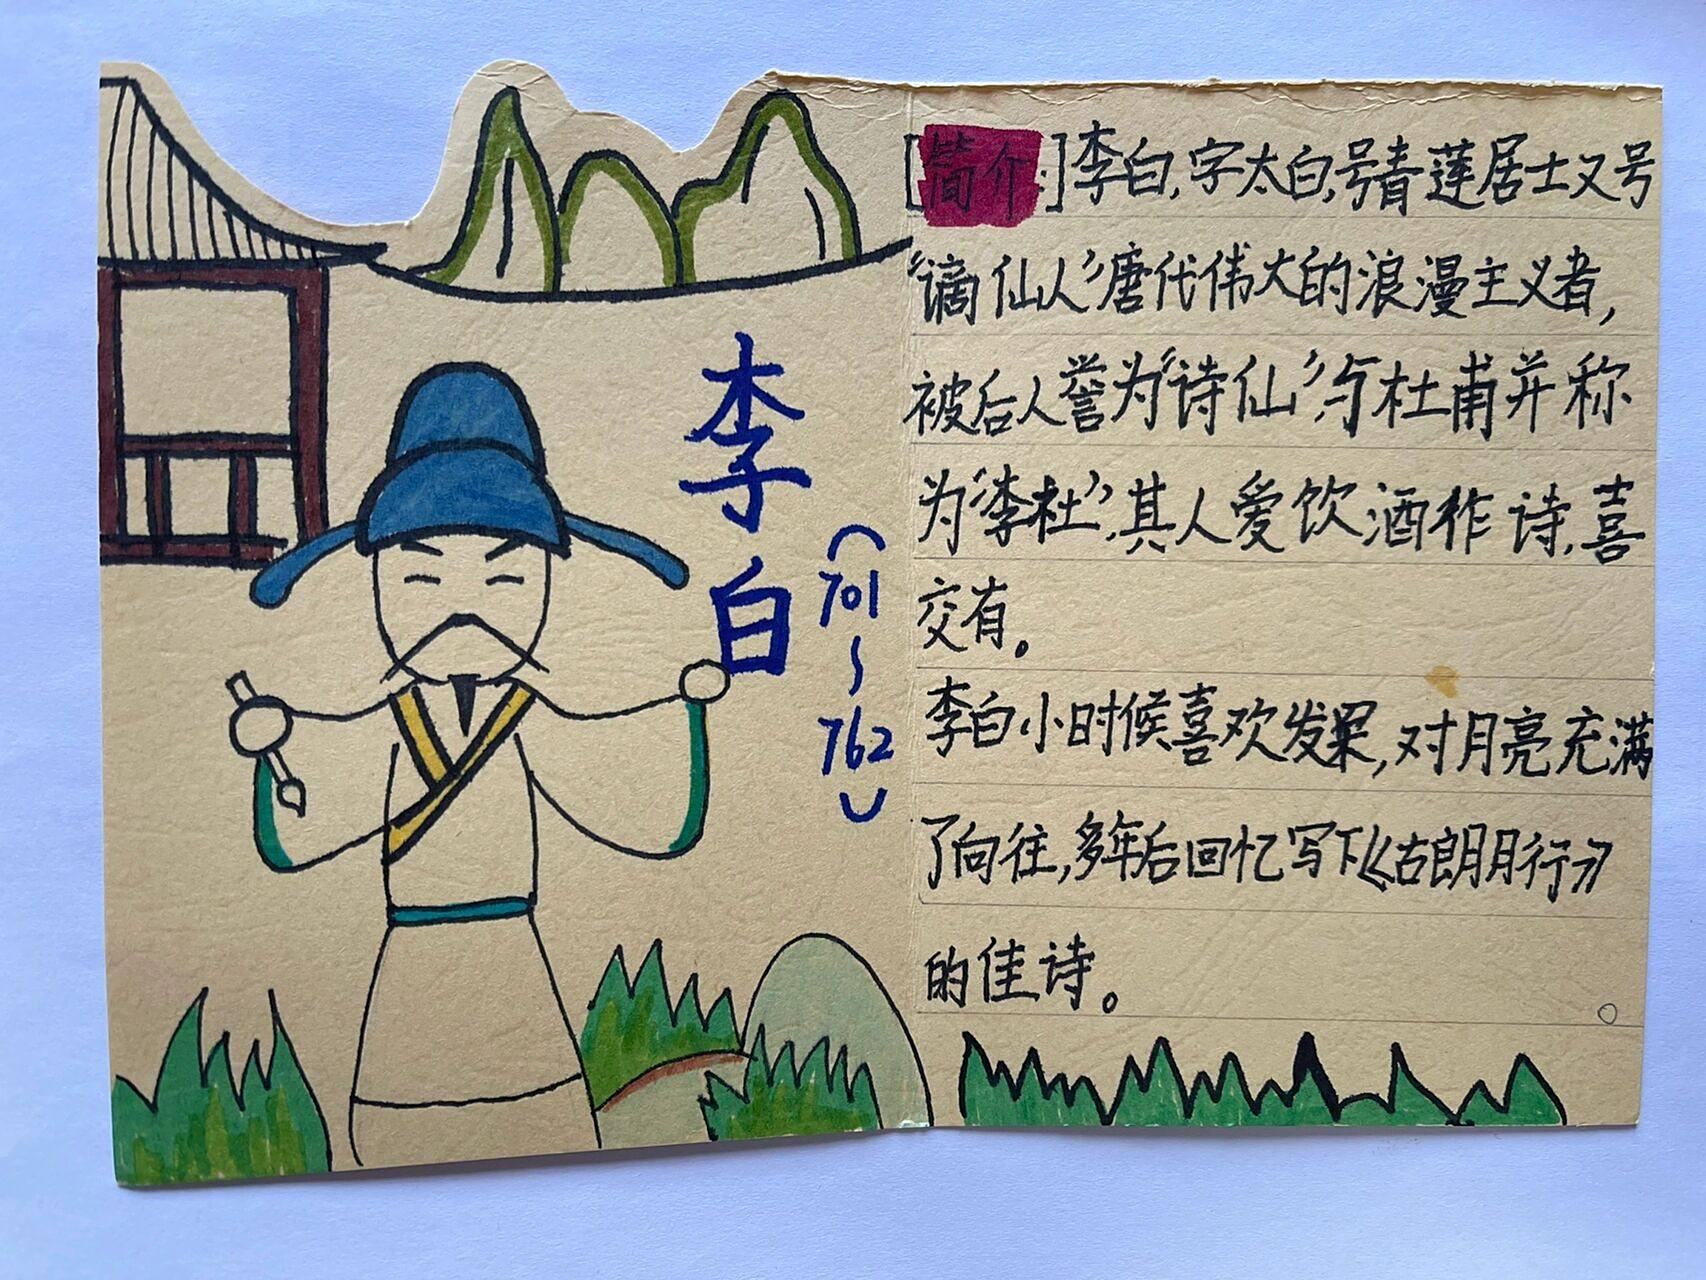 李白
(701~762)
[简介:]李白,字太白,号青莲居士又号
“谪仙人”唐代伟大的浪漫主义者,
被后人誉为“诗仙”,与杜甫并称
为“李杜”,其人爱饮酒作诗,喜
交有。
李白小时候喜欢发累,对月亮充满
了向往,多年后回忆写下《古朗月行》
的佳诗。